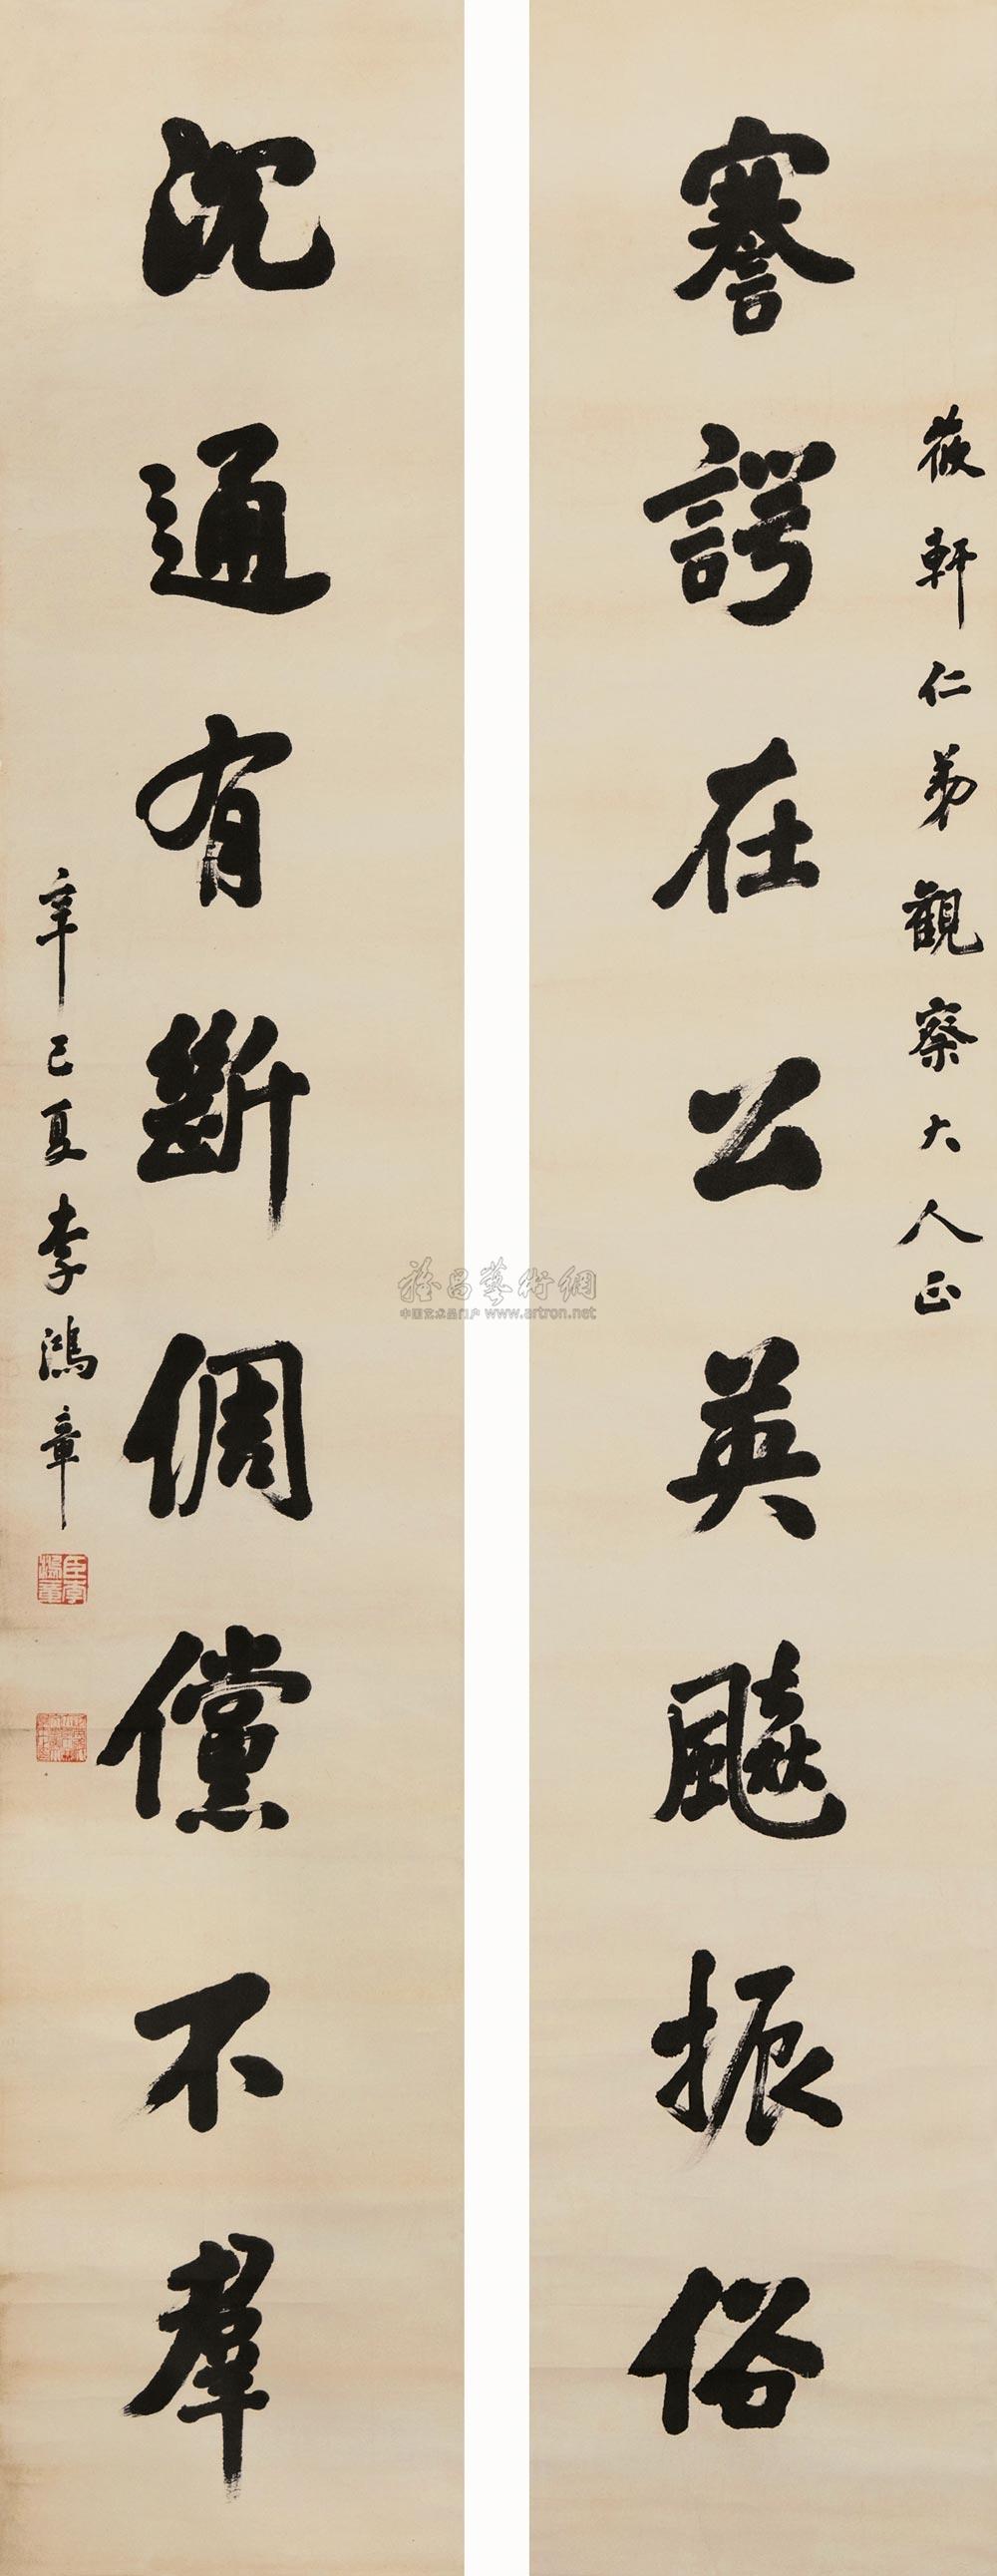 薇軒仁弟觀察大人正
謇諤在公英飈振俗
沉通有斷倜儻不羣
辛巳夏李鴻章
臣李鴻章
雅昌藝術網
中国艺术品门户 www.artron.net